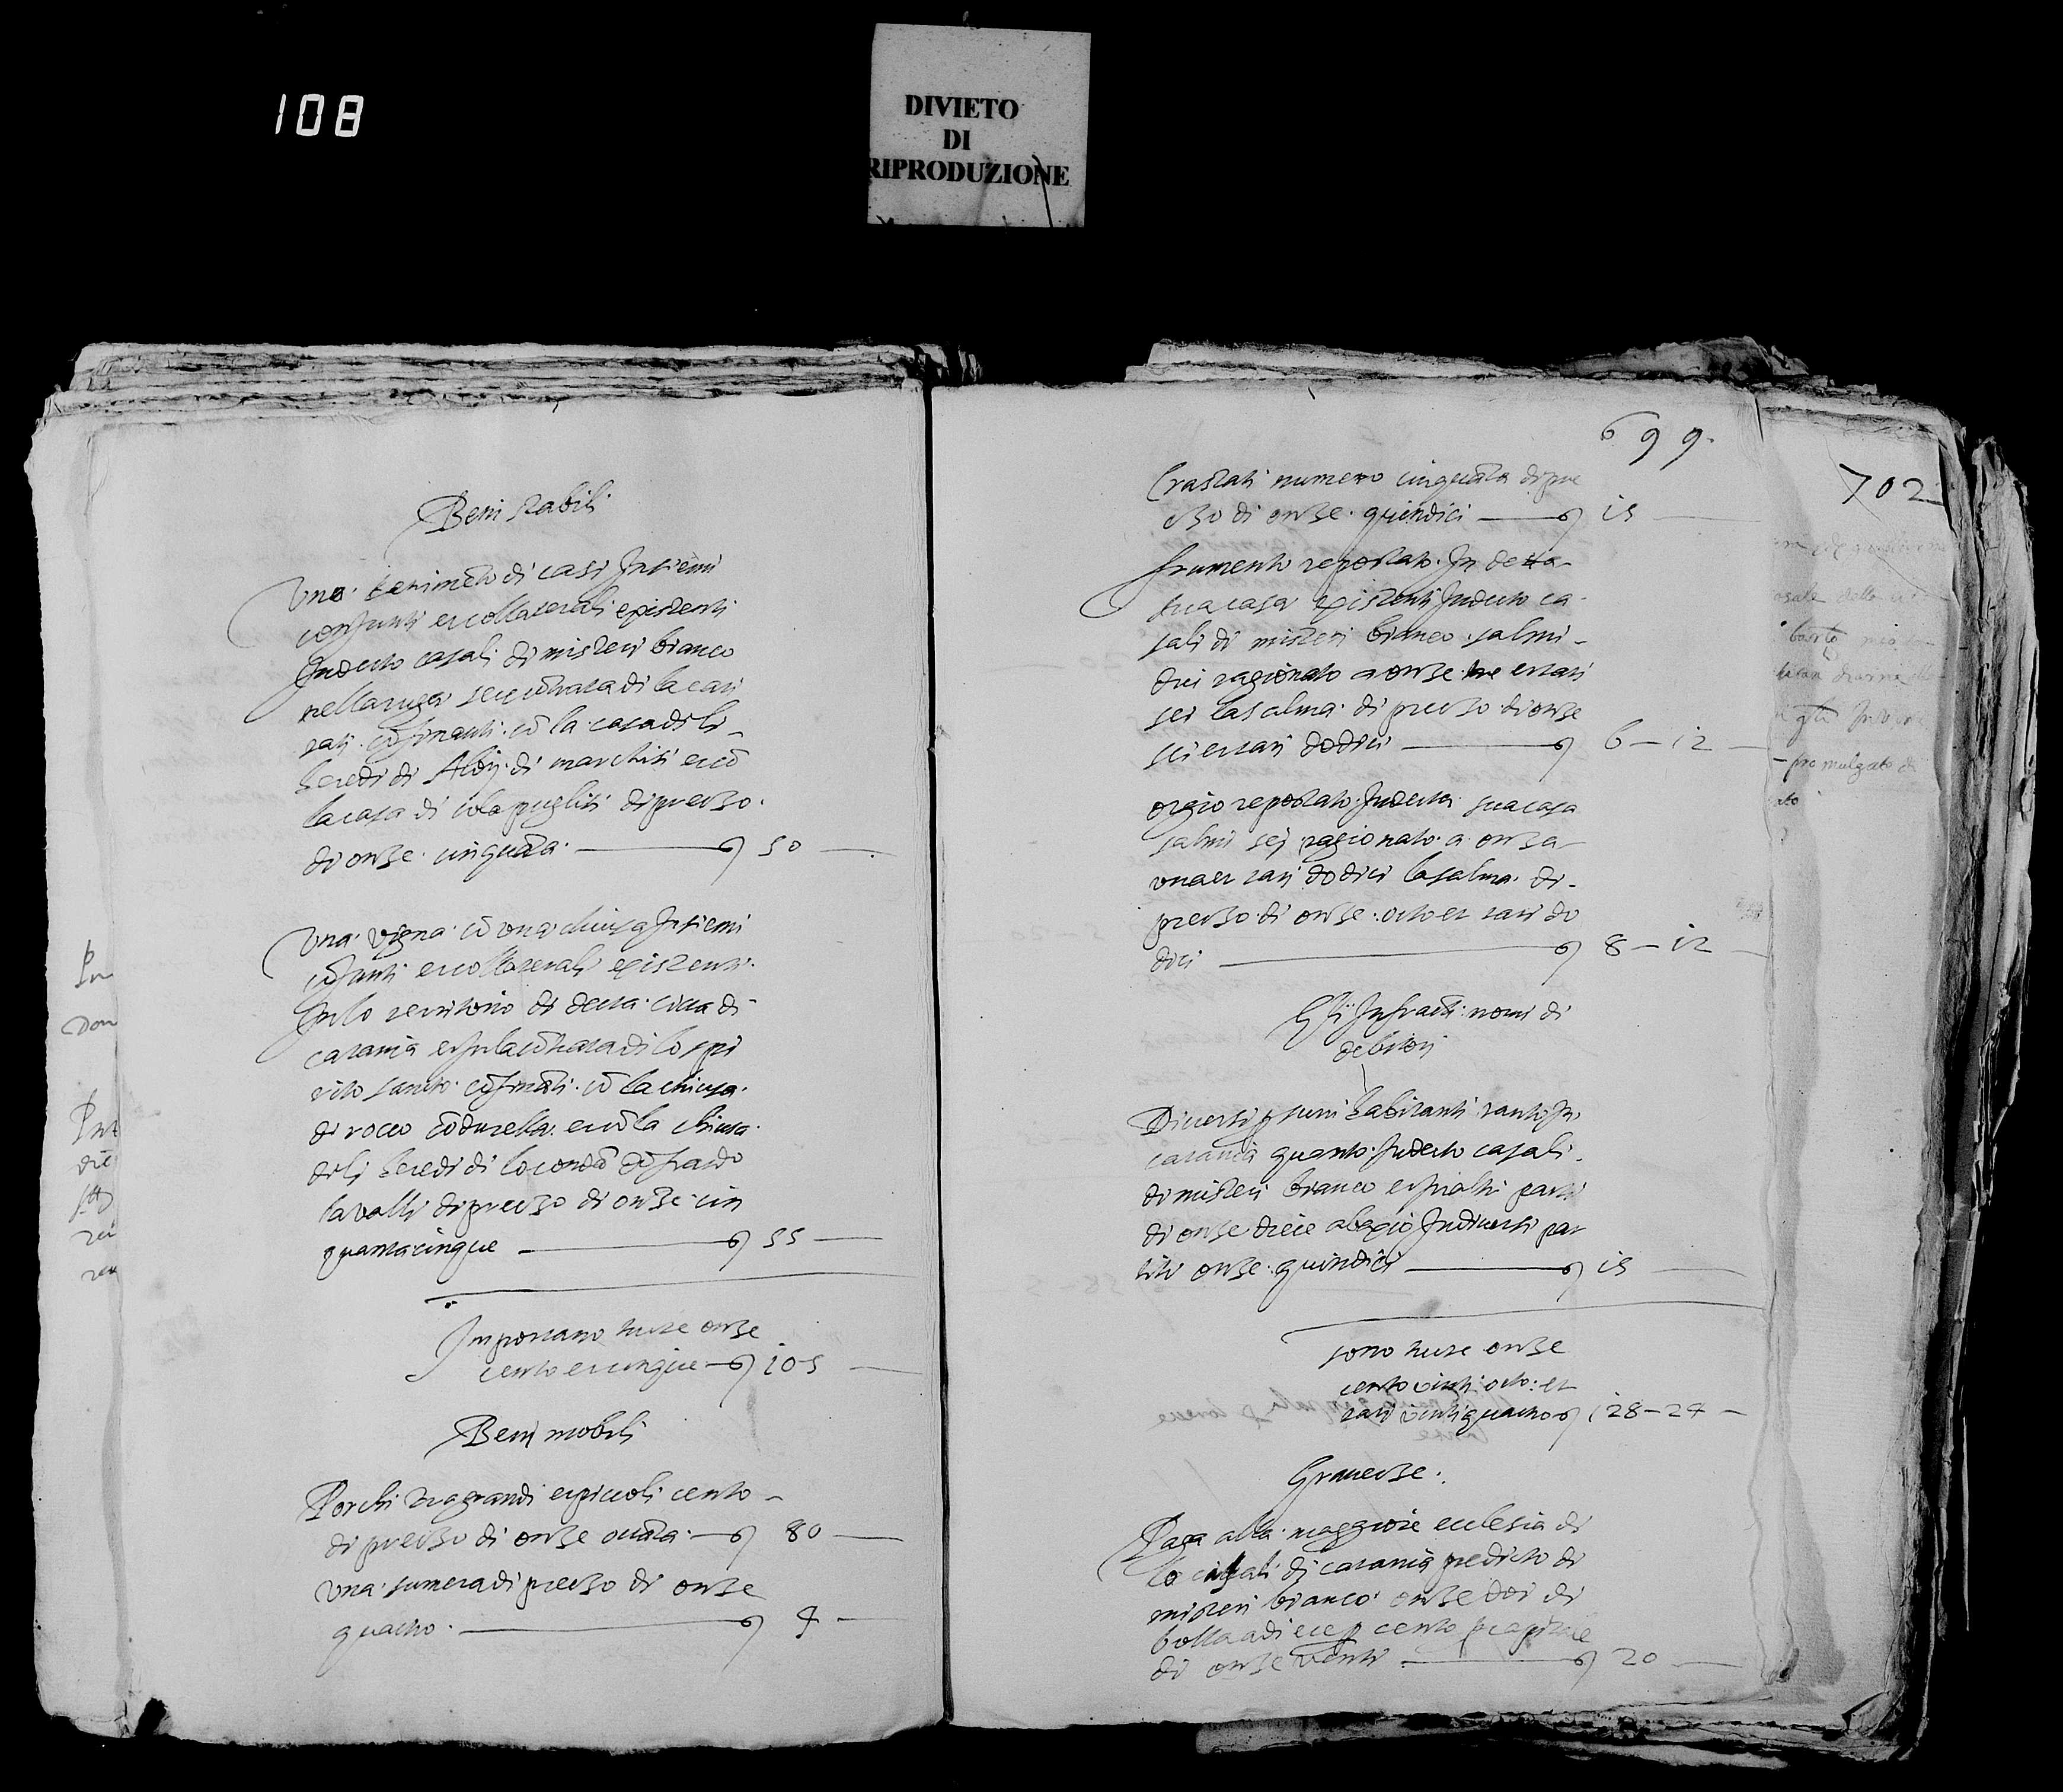 108
DIVIETO
DI
RIPRODUZIONE
Beni stabili
Uno tenimēto di casi Insiemi
conjunti et collaterali existenti
Indicto casali di misteri bianco
nella ruga seu cōtrata di la cari
cōfinanti cū la casa di li
heredi di di marchisi et cō
la casa di cola puglisi di preczo
di onze cinquāta — 50 —
Una vigna cū una chiusa Insiemi
cōjunti et collaterali existenti
In lo territorio di decta cita di
catania et In la cōtrata di lo spi
rito sancto cōfināti cū la chiusa
di rocco et cō la chiusa
di li heredi di lo condā
lavalli di preczo di onze cin
quanta cinque — 55 —
Importano tucte onze
cento et cinque — 105 —
Beni mobili
Porchi tra grandi et piccoli cento
di preczo di onze octāta — 80 —
Una sumera di preczo di onze
quatro — 4 —
699.
Crastati numero cinquāta di pre
czo di onze quindici — 15 —
frumento repostato In detta
sua casa existenti Indicto ca
sali di misteri bianco salmi
dui ragionato a onze tre et tari
sei la salma di preczo di onze
sei et tari dodici — 6 — 12 —
orgio repostato Indicta sua casa
salmi sej ragionato a onza
una et tarj dodici la salma di
preczo di onze octo et tari do
dici — 8 — 12 —
Gli Infracti nomi di
debitori
Diversi persuni habitanti tanto In
catania quanto Indicto casali
di misteri bianco et In altri parti
di onze diece abaxio In diversi par
titi onze quindici — 15 —
sono tucte onze
cento vinti octo et
tari vinti quatro 128 — 24 —
Graveze
Paga alla maggiore ecclesia di
lo casali di catania predicto di
misteri bianco onze doi di
bolla a diece per cento
di onze venti — 20 —
702
promulgato